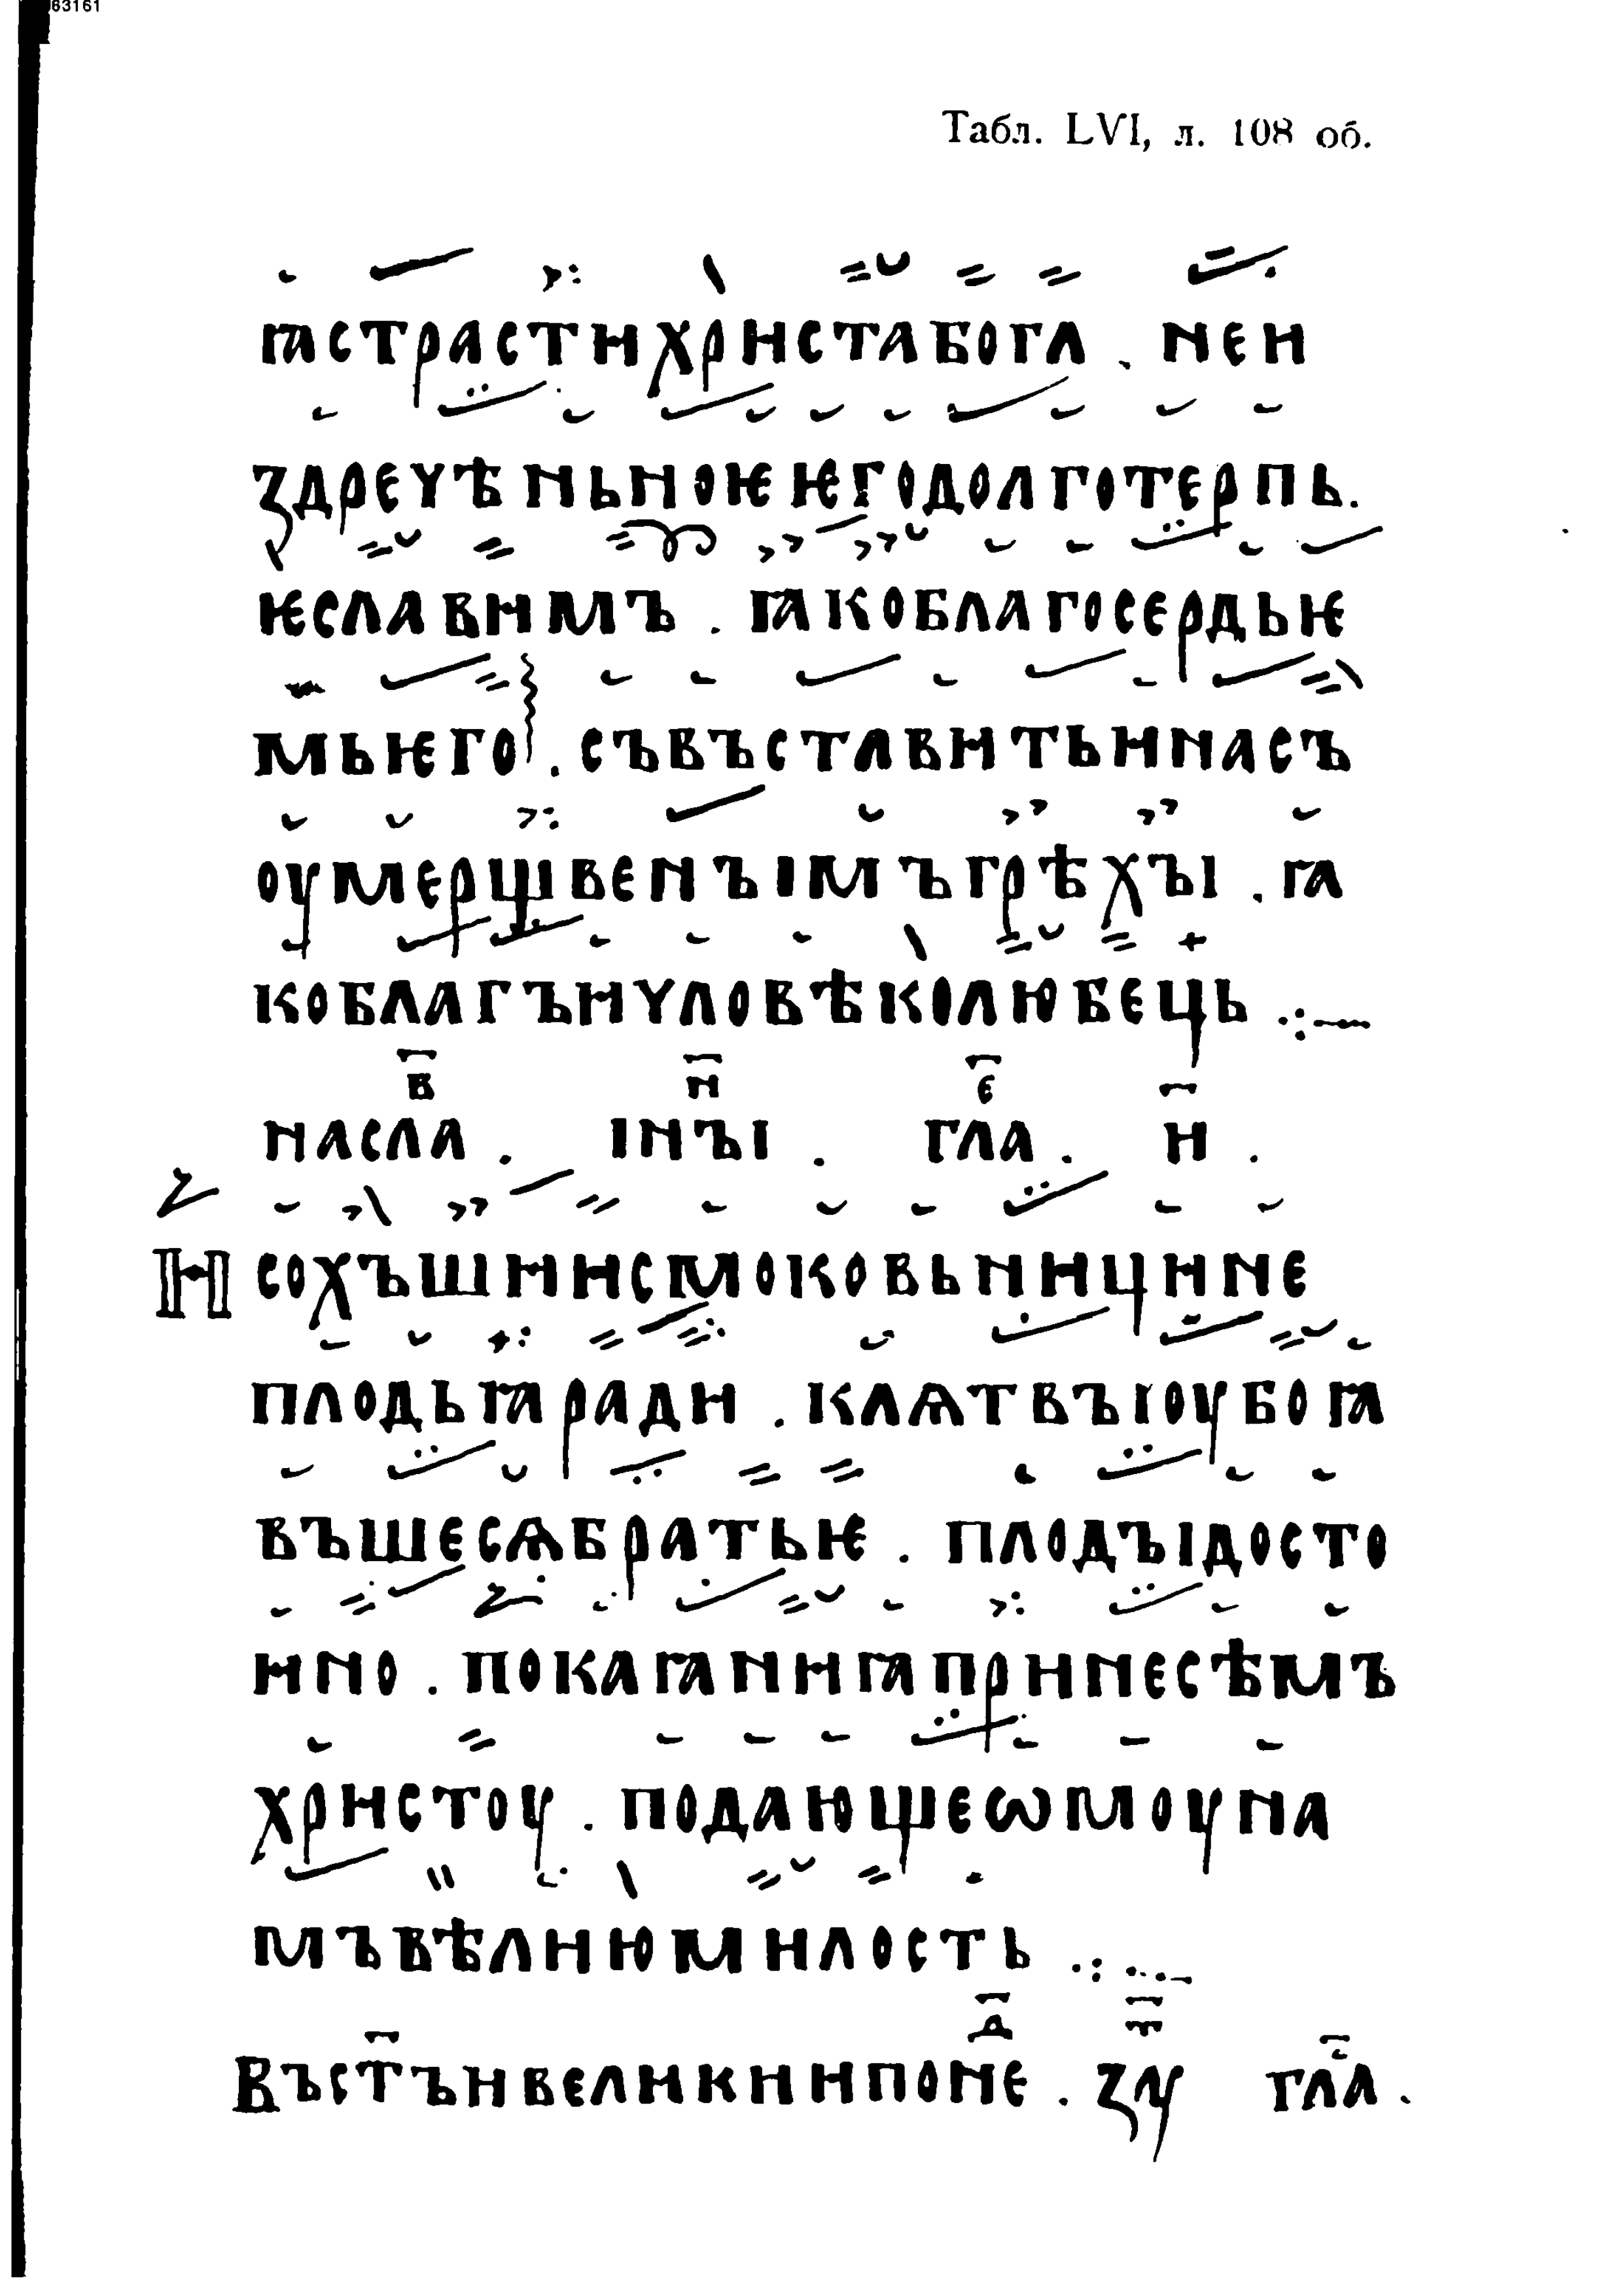 63161
Табл. LVI, л. 108 об.
ꙗстрастихристабога . неи
здречѣньноѥѥгодолготерпь.
ѥславимъ . ꙗкоблагосердьѥ
мьѥго . съвъставитьинасъ
оумерщвенъімъгрѣхъі . ꙗ
коблагъичловѣколюбець .:~
насла в҃ . інъі н҃ . гла е҃ . и҃ .
Исохъшиисмоковьницине
плодьꙗради . клѧтвъіоубоꙗ
въшесѧбратьѥ . плодъідосто
ино . покаꙗниꙗпринесѣмъ
христоу . подающеѡмоуна
мъвѣлиюмилость .:...~
Въст҃ъивеликиипоне д҃ . зау т҃ гла҃ .